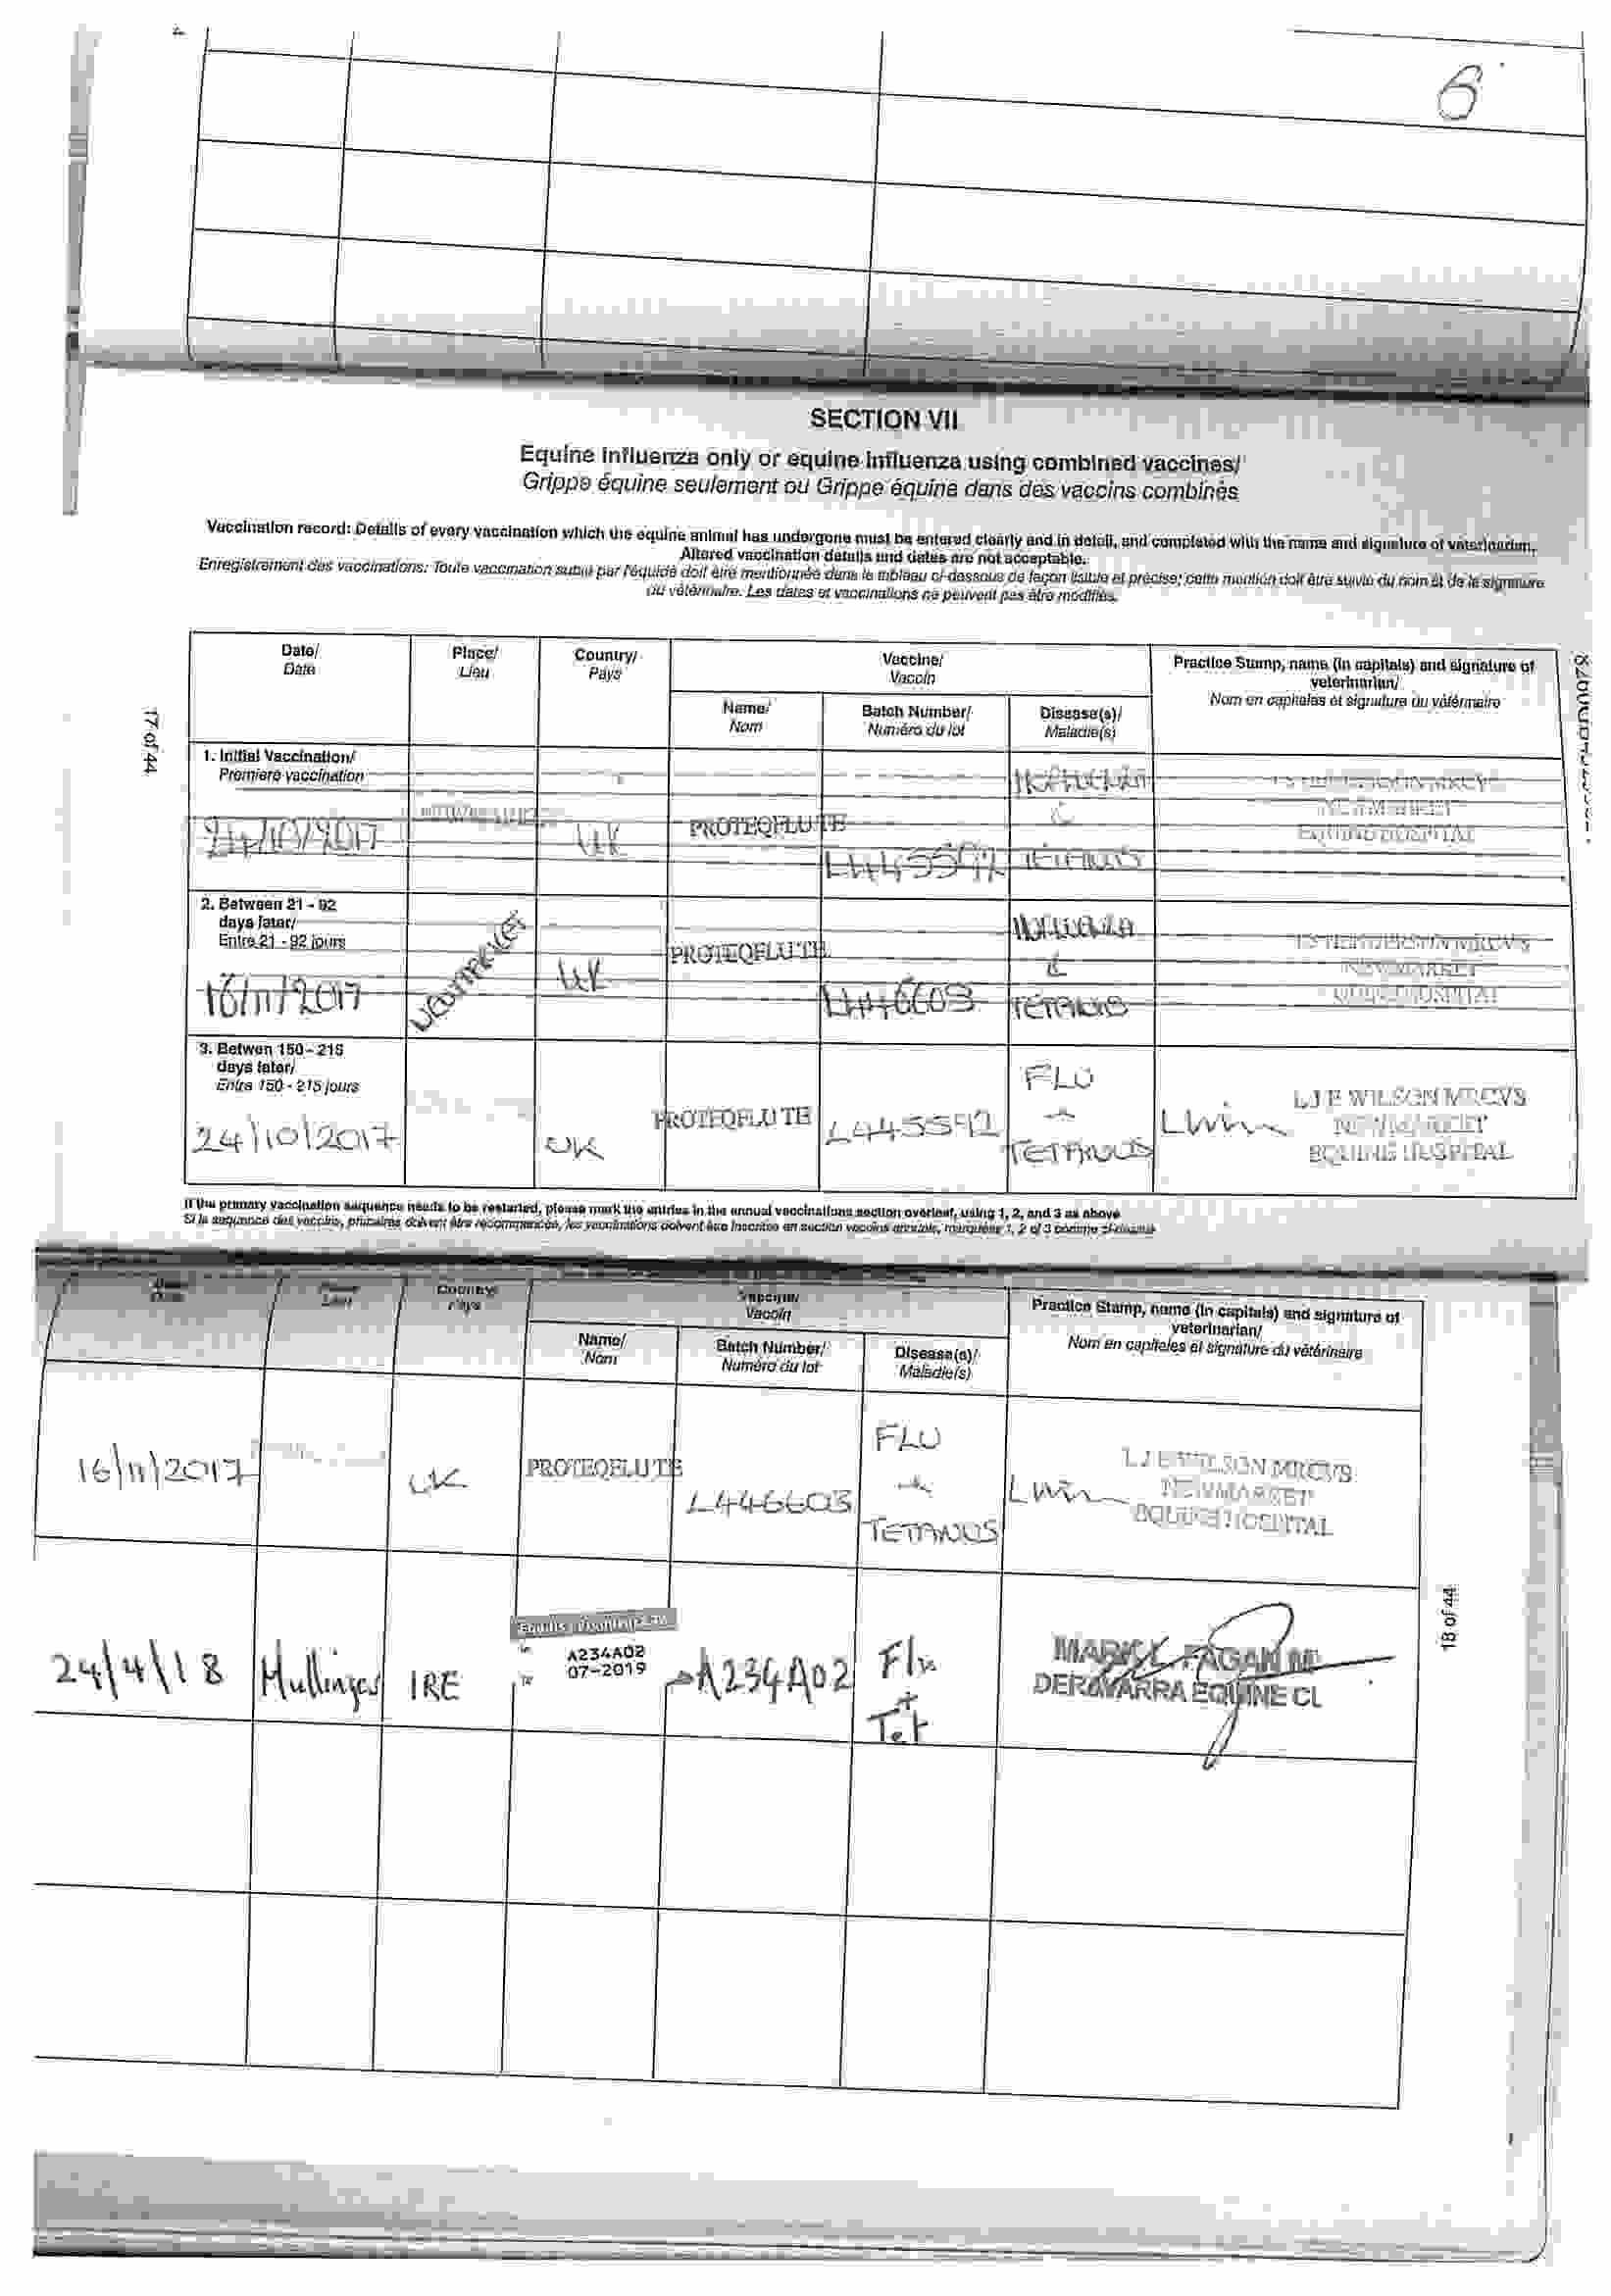 6
SECTION VII
Equine influenza only or equine influenza using combined vaccines/
Grippe équine seulement ou Grippe équine dans des vaccins combinés
Vaccination record: Details of every vaccination which the equine animal has undergone must be entered clearly and in detail, and completed with the name and signature of veterinarian.
Altered vaccination details and dates are not acceptable.
Enregistrement des vaccinations: Toute vaccination subie par l'équidé doit être mentionnée dans le tableau ci-dessous de façon lisible et précise; cette mention doit être suivie du nom et de la signature
du vétérinaire. Les dates et vaccinations ne peuvent pas être modifiés.
17 of 44
Date/ Place/ Country/ Vaccine/ Practice Stamp, name (in capitals) and signature of
Date Lieu Pays Vaccin veterinarian/
Nom en capitales et signature du vétérinaire
Name/ Batch Number/ Disease(s)/
Nom Numéro du lot Maladie(s)
1. Initial Vaccination/
Premiere vaccination
24/10/2017 UK PROTEQFLU TE L445592 TETANUS
NEWMARKET
EQUINE HOSPITAL
2. Between 21 - 92
days later/
Entre 21 - 92 jours
16/11/2017 NEWMARKET UK PROTEQFLU TE L446603 & TETANUS
HENDERSON MRCVS
NEWMARKET
EQUINE HOSPITAL
3. Betwen 150 - 215
days later/
Entre 150 - 215 jours
24/10/2017 UK PROTEQFLU TE L445592 FLU + TETANUS
L J E WILSON MRCVS
NEWMARKET
EQUINE HOSPITAL
If the primary vaccination sequence needs to be restarted, please mark the entries in the annual vaccinations section overleaf, using 1, 2, and 3 as above
Country/ Vaccine/ Practice Stamp, name (in capitals) and signature of
Pays Vaccin veterinarian/
Nom en capitales et signature du vétérinaire
Name/ Batch Number/ Disease(s)/
Nom Numéro du lot Maladie(s)
16/11/2017 UK PROTEQFLU TE L446603 FLU + TETANUS
L J E WILSON MRCVS
NEWMARKET
EQUINE HOSPITAL
18 of 44
24/4/18 Mullingar IRE A234A02 Flu + Tet
A234A02
07-2019
FAGAN
DERAVARRA EQUINE CL